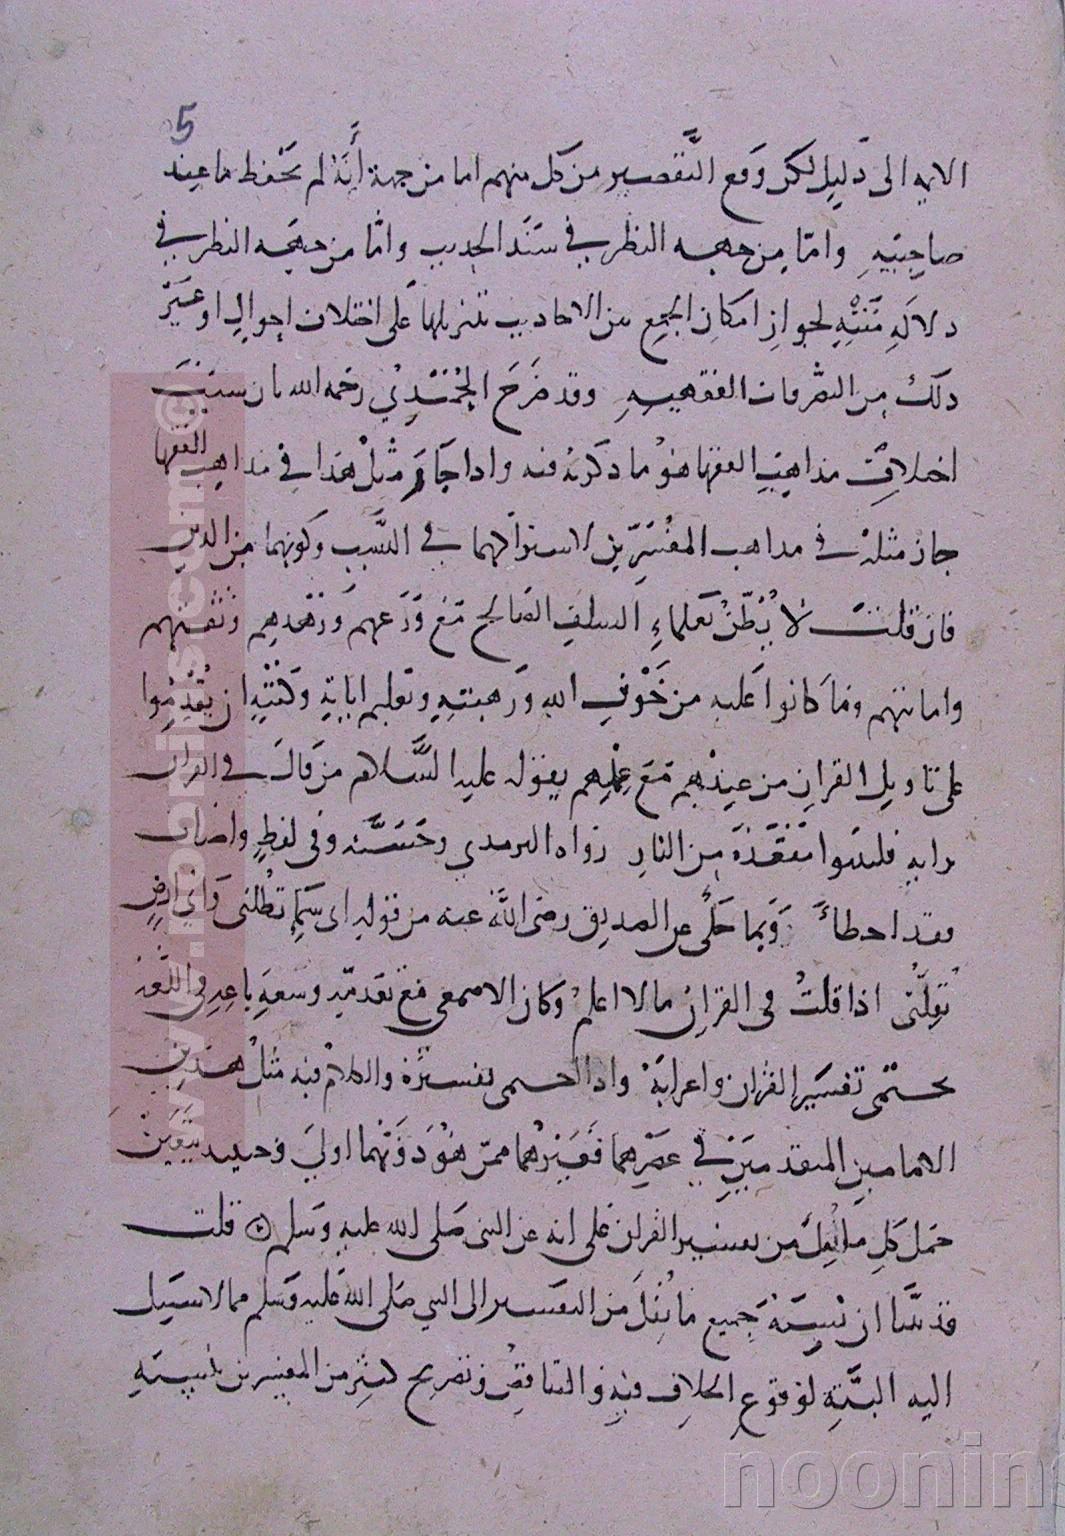 5
الايه الى دَليِل لكن وَقع التَّقصير من كل منهم اما من جهة أنَّهُ لم يَحْفظ ما عِند
صاحِبَيهِ وامّا مِن جهه النظر في سَنَد الحديب وامّا من جهَه النظر في
دلالَهِ مَتْنِهِ لجواز امكان الجَمع بين الاحاديب بتنزيلها عَلى اختلاف احوالٍ او غيَر
ذلكَ مِن التصَرفات الفقهيهِ وقد صَرَحَ الجُنْدِيُّ رحمه الله بان سبَبَ
اختلافِ مذاهِبِ الفقها هوُ ما ذكرته فيه واذا جَازَ مثلُ هَذا في مذاهِب الفقها
جازَ مثلهُ في مذاهب المفُسّرِين لاستوآئهما في السَّبب وكونهما مِن الدين
فان قلتَ لا يُظنُّ بعلماءِ السلفِ الصَالح مَعَ وَرَعهم وزهدِهم وثقتهم
وامانتهم وَمَا كانوا عَليه من خَوْفِ الله وَرَهبتِهِ وتعليم اياتهِ وكتُبِهِ ان يُقدِمُوا
على تاويل القرانِ من عِندِهم مَعَ عِلمِهم بقوله عليه السَّلام من قالَ في القران
برايهِ فليتبوا مَقعَدَهُ مِن النارِ رواه الترمدي وحَسَّنه وفي لفظٍ واصاب
فقد اخطاءَ وَبما حُكى عن الصديق رضى الله عنه من قوله اي سَماءٍ تُظلنى وَاي ارضٍ
تُقِلُّنى اذا قلتُ في القرانِ مالا اعلمُ وكان الاصمعي مَع تقدّمِه وسَعَهِ باعِهِ في اللّغه
يحتمى تفسيَر القران واعرابَهُ واذا احتمى تفسيرَهُ والكلامَ فيه مثلُ هذين
الامامين المتقدميَن في عصْرِهما فَغَيرهُما ممن هوُ دوَنهما اوليَ وحينيد يَتَعَينُ
حَمل كلِ ما نُقِلَ من تفسير القران عَلى انه عن النبى صَلى الله عليهِ وَسَلم ۞ قلت
قد بيّنا ان نِسبَتهُ جَميع ما نُقِلَ من التفسير الى النبي صَلى الله عليه وَسَلم مما لا سبيَل
اليه البتّةِ لوُقوع الخلافِ فيهِ والتناقضِ وتصَريح كثير من المفسرين بنسبته
www.nobilis.com ©
noonin